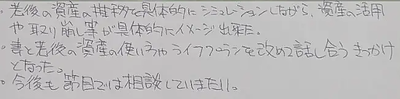 ・老後の資産の推移を具体的にシミュレーションしながら、資産の活用
や取り崩し等が具体的にイメージ出来た。
・妻と老後の資産の使い方やライフプランを改めて話し合うきっかけ
となった。
・今後も節目では相談していきたい。